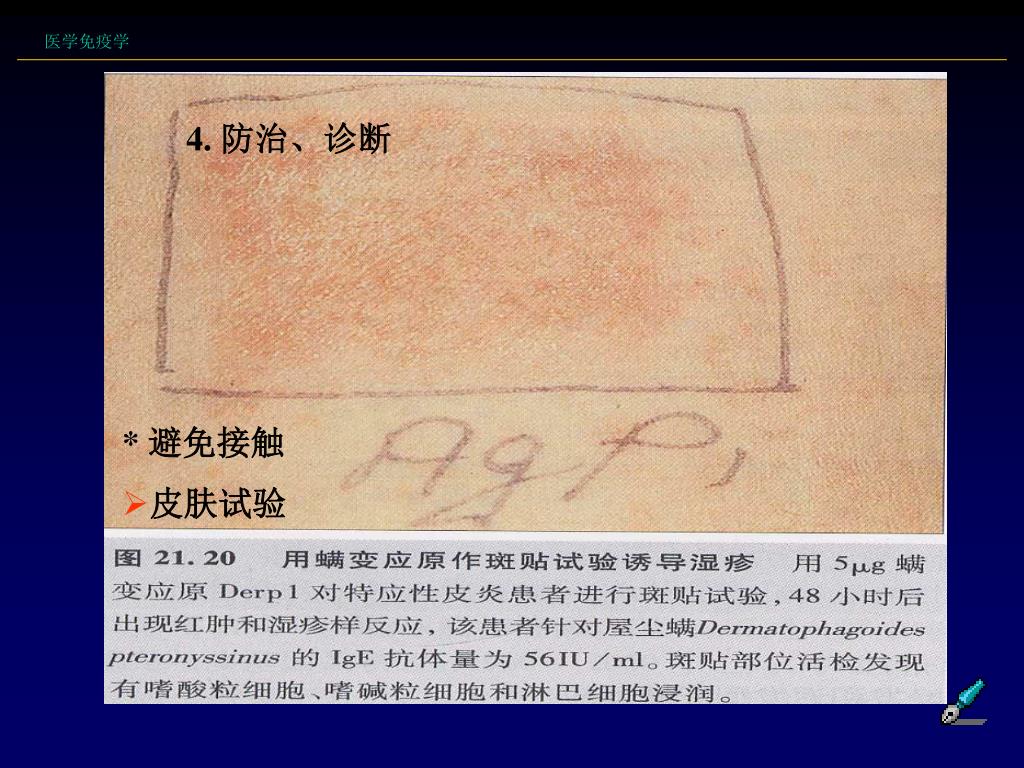 医学免疫学
4. 防治、诊断
Ag P1
* 避免接触
皮肤试验
图 21.20 用螨变应原作斑贴试验诱导湿疹 用 5μg 螨
变应原 Derp1 对特应性皮炎患者进行斑贴试验,48 小时后
出现红肿和湿疹样反应,该患者针对屋尘螨Dermatophagoides
pteronyssinus 的 IgE 抗体量为 56IU/ml。斑贴部位活检发现
有嗜酸粒细胞、嗜碱粒细胞和淋巴细胞浸润。